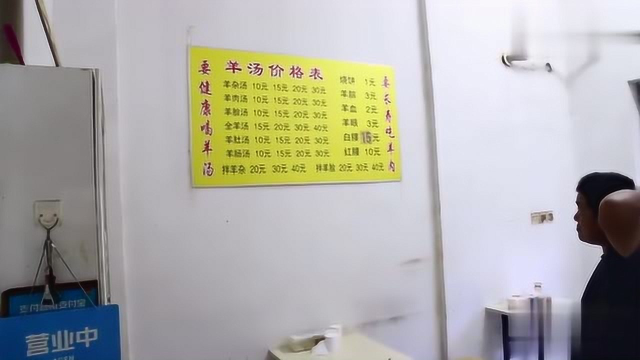 羊汤价格表
要健康喝羊汤
羊杂汤 10元 15元 20元 30元
羊肉汤 10元 15元 20元 30元
羊脸汤 10元 15元 20元 30元
全羊汤 15元 20元 30元 40元
羊肚汤 10元 15元 20元 30元
羊肠汤 10元 15元 20元 30元
拌羊杂 20元 30元 40元
烧饼 1元
羊脑 3元
羊血 2元
羊眼 3元
白腰 15元
红腰 10元
拌羊脸 20元 30元 40元
要长寿吃羊肉
支付宝
营业中